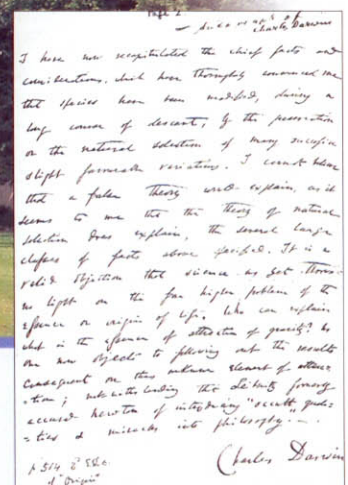 Charles Darwin
I have now recapitulated the chief facts and
considerations, which have thoroughly convinced me
that species have been modified, during a
long course of descent, by the preservation
or the natural selection of many successive
slight favourable variations. I cannot believe
that a false theory would explain, as it
seems to me that the theory of natural
selection does explain, the several large
classes of facts above specified. It is no
valid objection that science as yet throws
no light on the far higher problem of the
essence or origin of life. Who can explain
what is the essence of attraction of gravity? No
one now objects to following out the results
consequent on this unknown element of attrac-
-tion; notwithstanding that Leibnitz formerly
accused Newton of introducing "occult quali-
-ties & miracles into philosophy".—
Charles Darwin
p 514 2d Edit.
of "Origin"